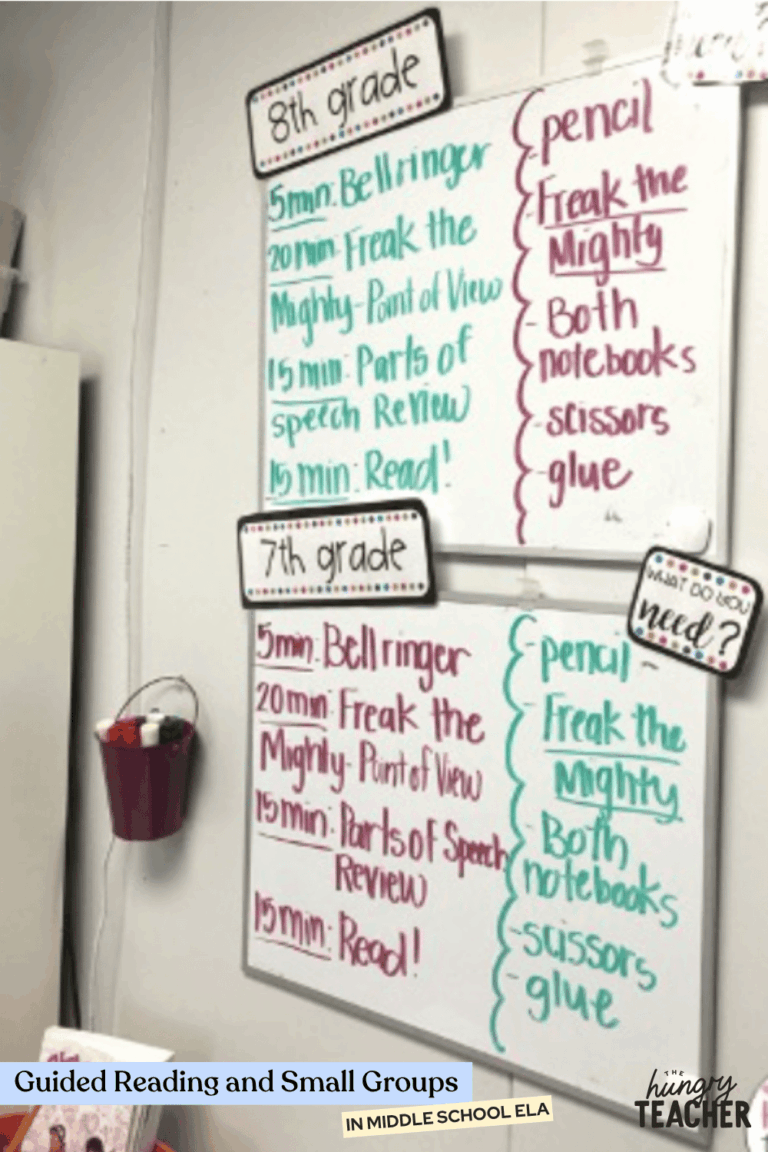 need?
8th grade
5min: Bellringer
20min Freak the
Mighty-Point of View
15 min: Parts of
speech Review
15 min: Read!
pencil
-Freak the
Mighty
- Both
notebooks
-scissors
-glue
7th grade
WHAT DO YOU
need?
5min: Bellringer
20min: Freak the
Mighty-Point of View
15min: Parts of Speech
Review
15min: Read!
-pencil-
- Freak the
Mighty
- Both
notebooks
-scissors
-glue
Guided Reading and Small Groups
IN MIDDLE SCHOOL ELA
THE
hungry
TEACHER